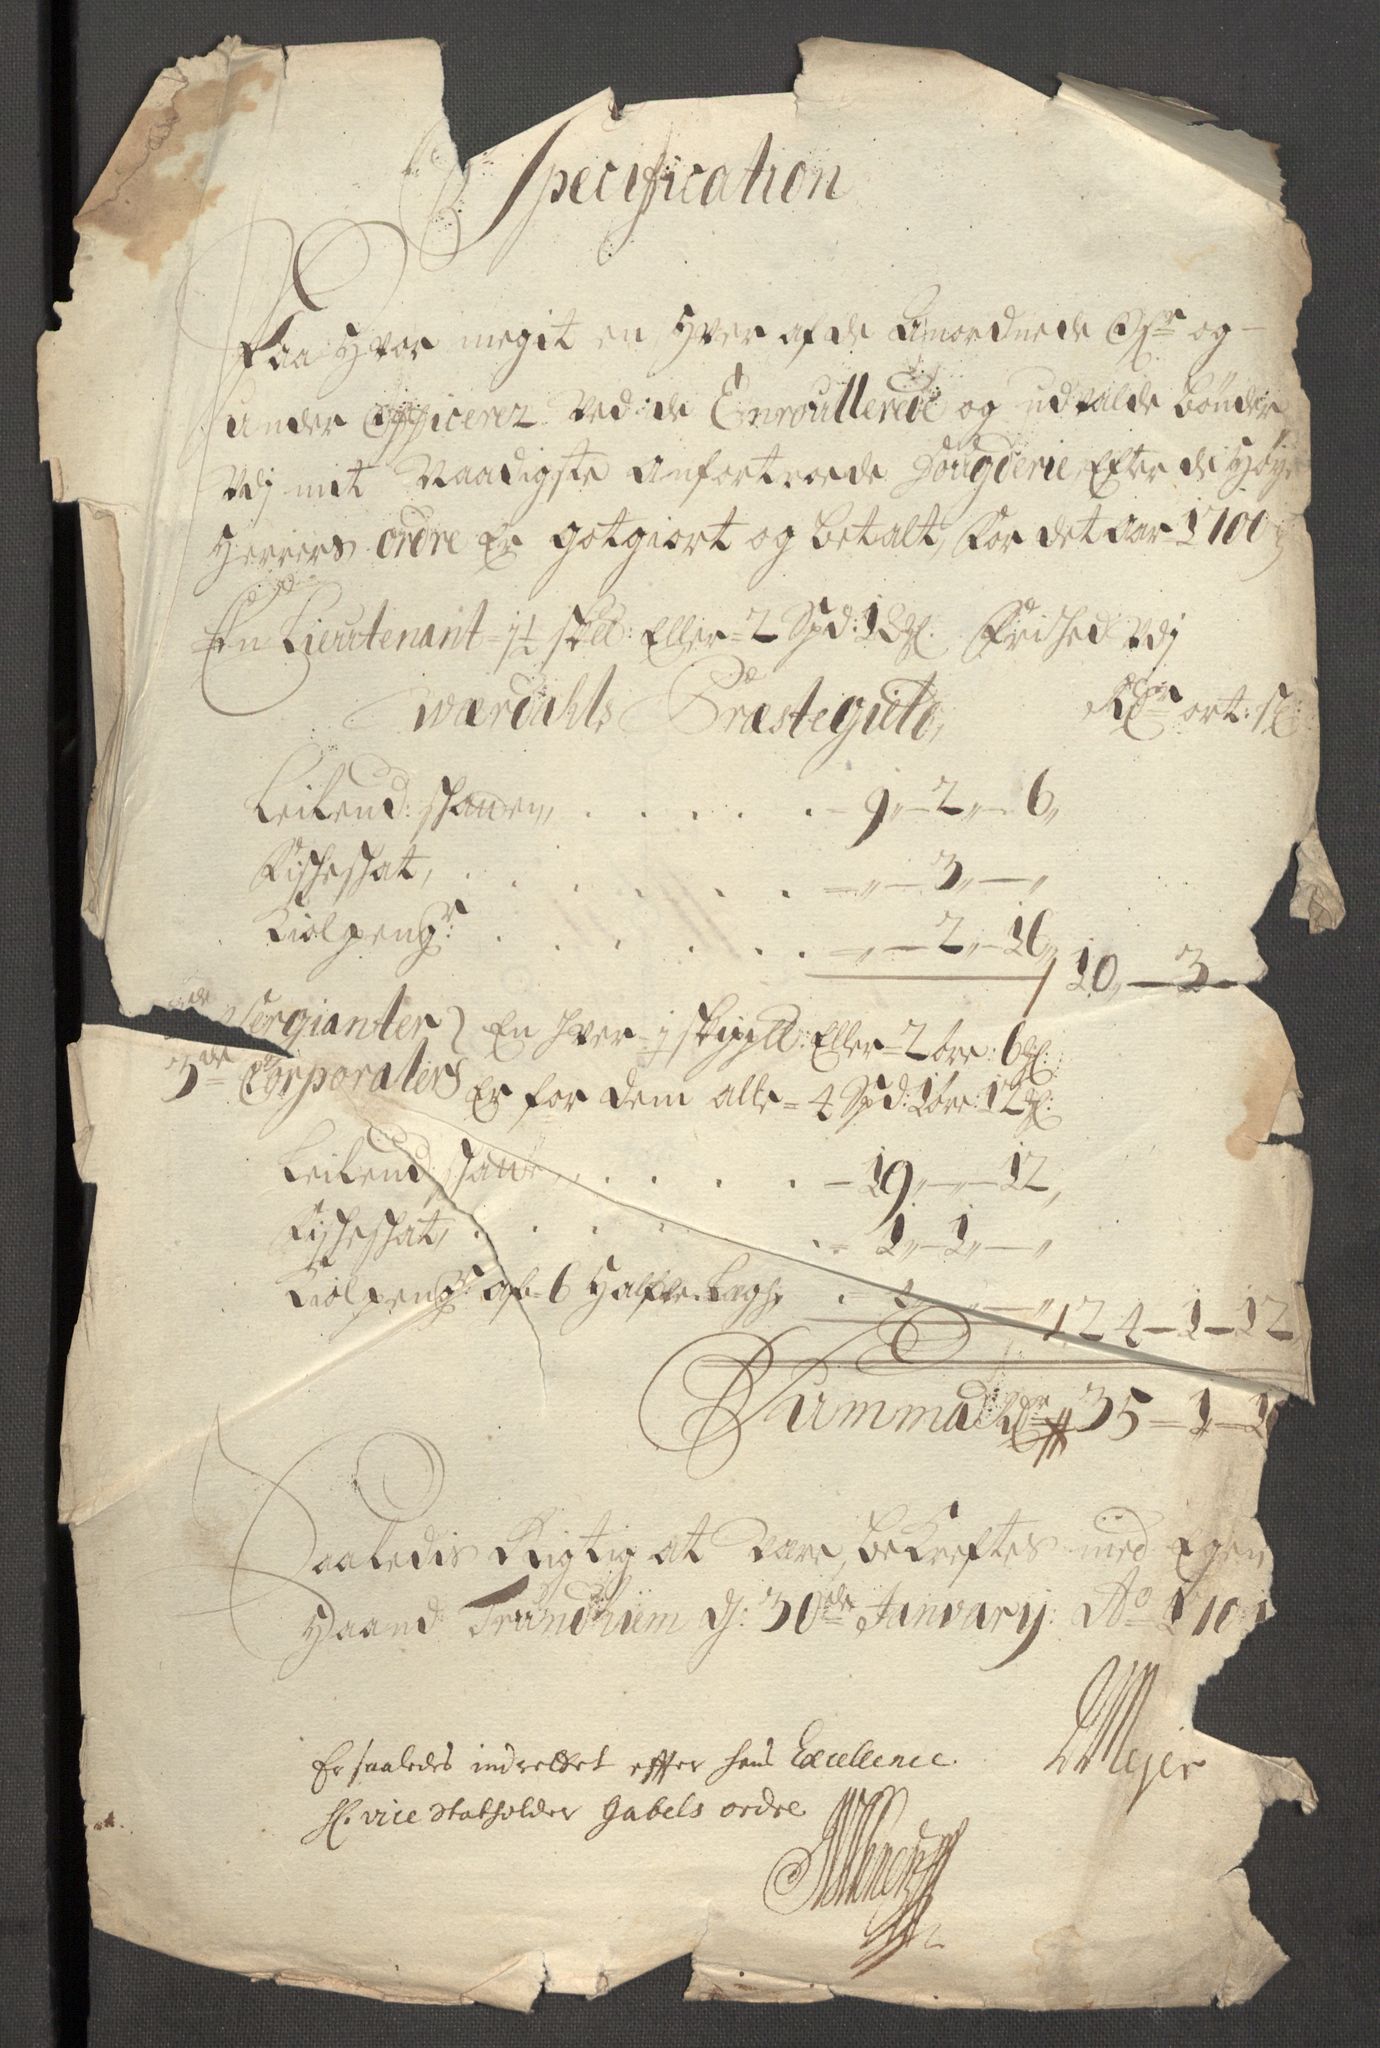 Specification
Paa Hvor megit en Hver af de Anordnede Off: og
under Officerer Ved de Enroullerede og udvalde bönder
Udj mit Naadigste anfortroede Fougderie, Efter de Høye
Herrers ordre Er gotgiort og betalt, for det Aar 1700
En Lieutenant = 1½ skll: Eller = 2 Spd: 1 Frihed Udj
Wærdahls Præstegield, Rdr ort: s:
Leilend: skatten, . . . . . - 9,, - 2,, - 6,,
Fiscleskat, . . . . . . - ,, - 3,, - ,,
Kiolpeng: . . . . . . - ,, - 2,, - 16,,
10,, - 3 -
Sergianter } En hver = j skipp: Eller = 2 öre: 6
3de Corporalers Er for dem alle = 4 Spd: 1 öre: 12
Leilend: skatt,, . . . . . - 19,, - ,, - 12,
Fiscleskat, . . . . . . - 1,, - 1,, - ,,
Kiolpeng: af = 6 Halfve Legh,
24 - 1 - 12
Summa Rdr 35 - 1 - 1
Saaledis Rigtig at Være, beKreftes med Egen
Haand Trundhiem d: 30de January: Ao 170
Mejer
Er saaledes indrettet effter hans Excellence
H. vice Statholder Gabels ordre